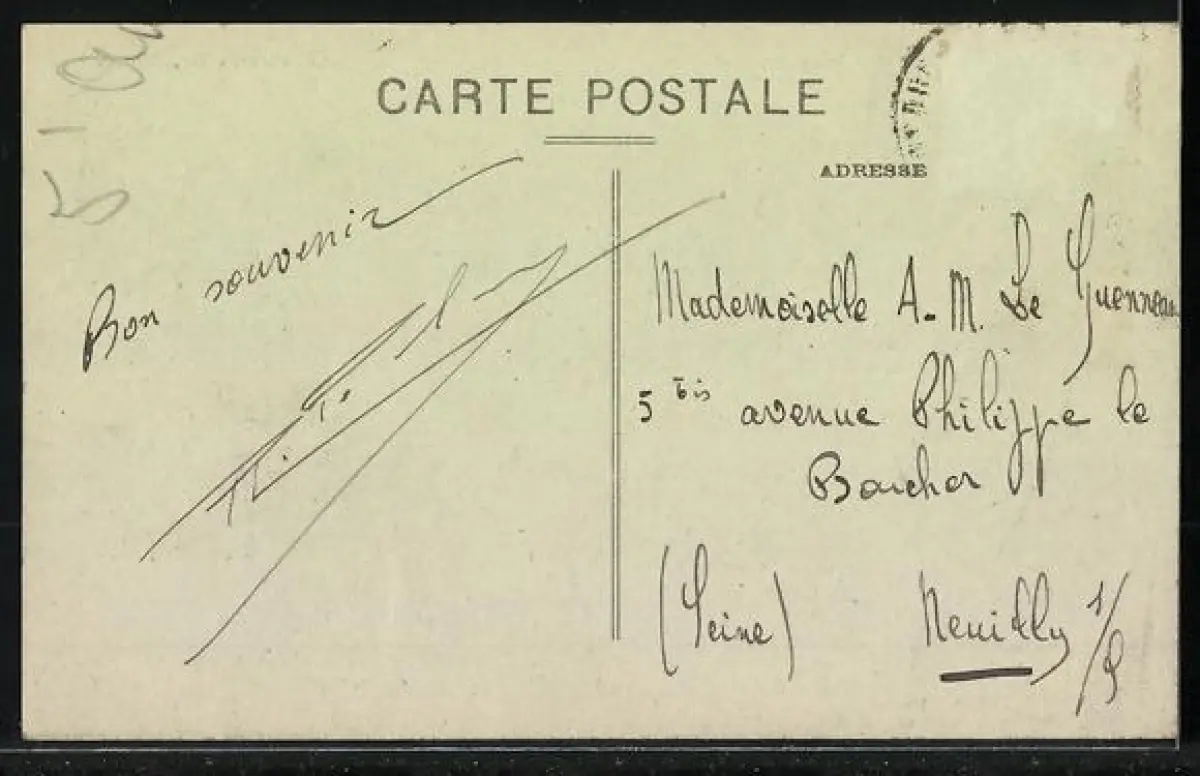 CARTE POSTALE
ADRESSE
Bon souvenir
Mademoiselle A.-M. Le Guennean
5 bis avenue Philippe le
Boucher
(Seine) Neuilly s/S